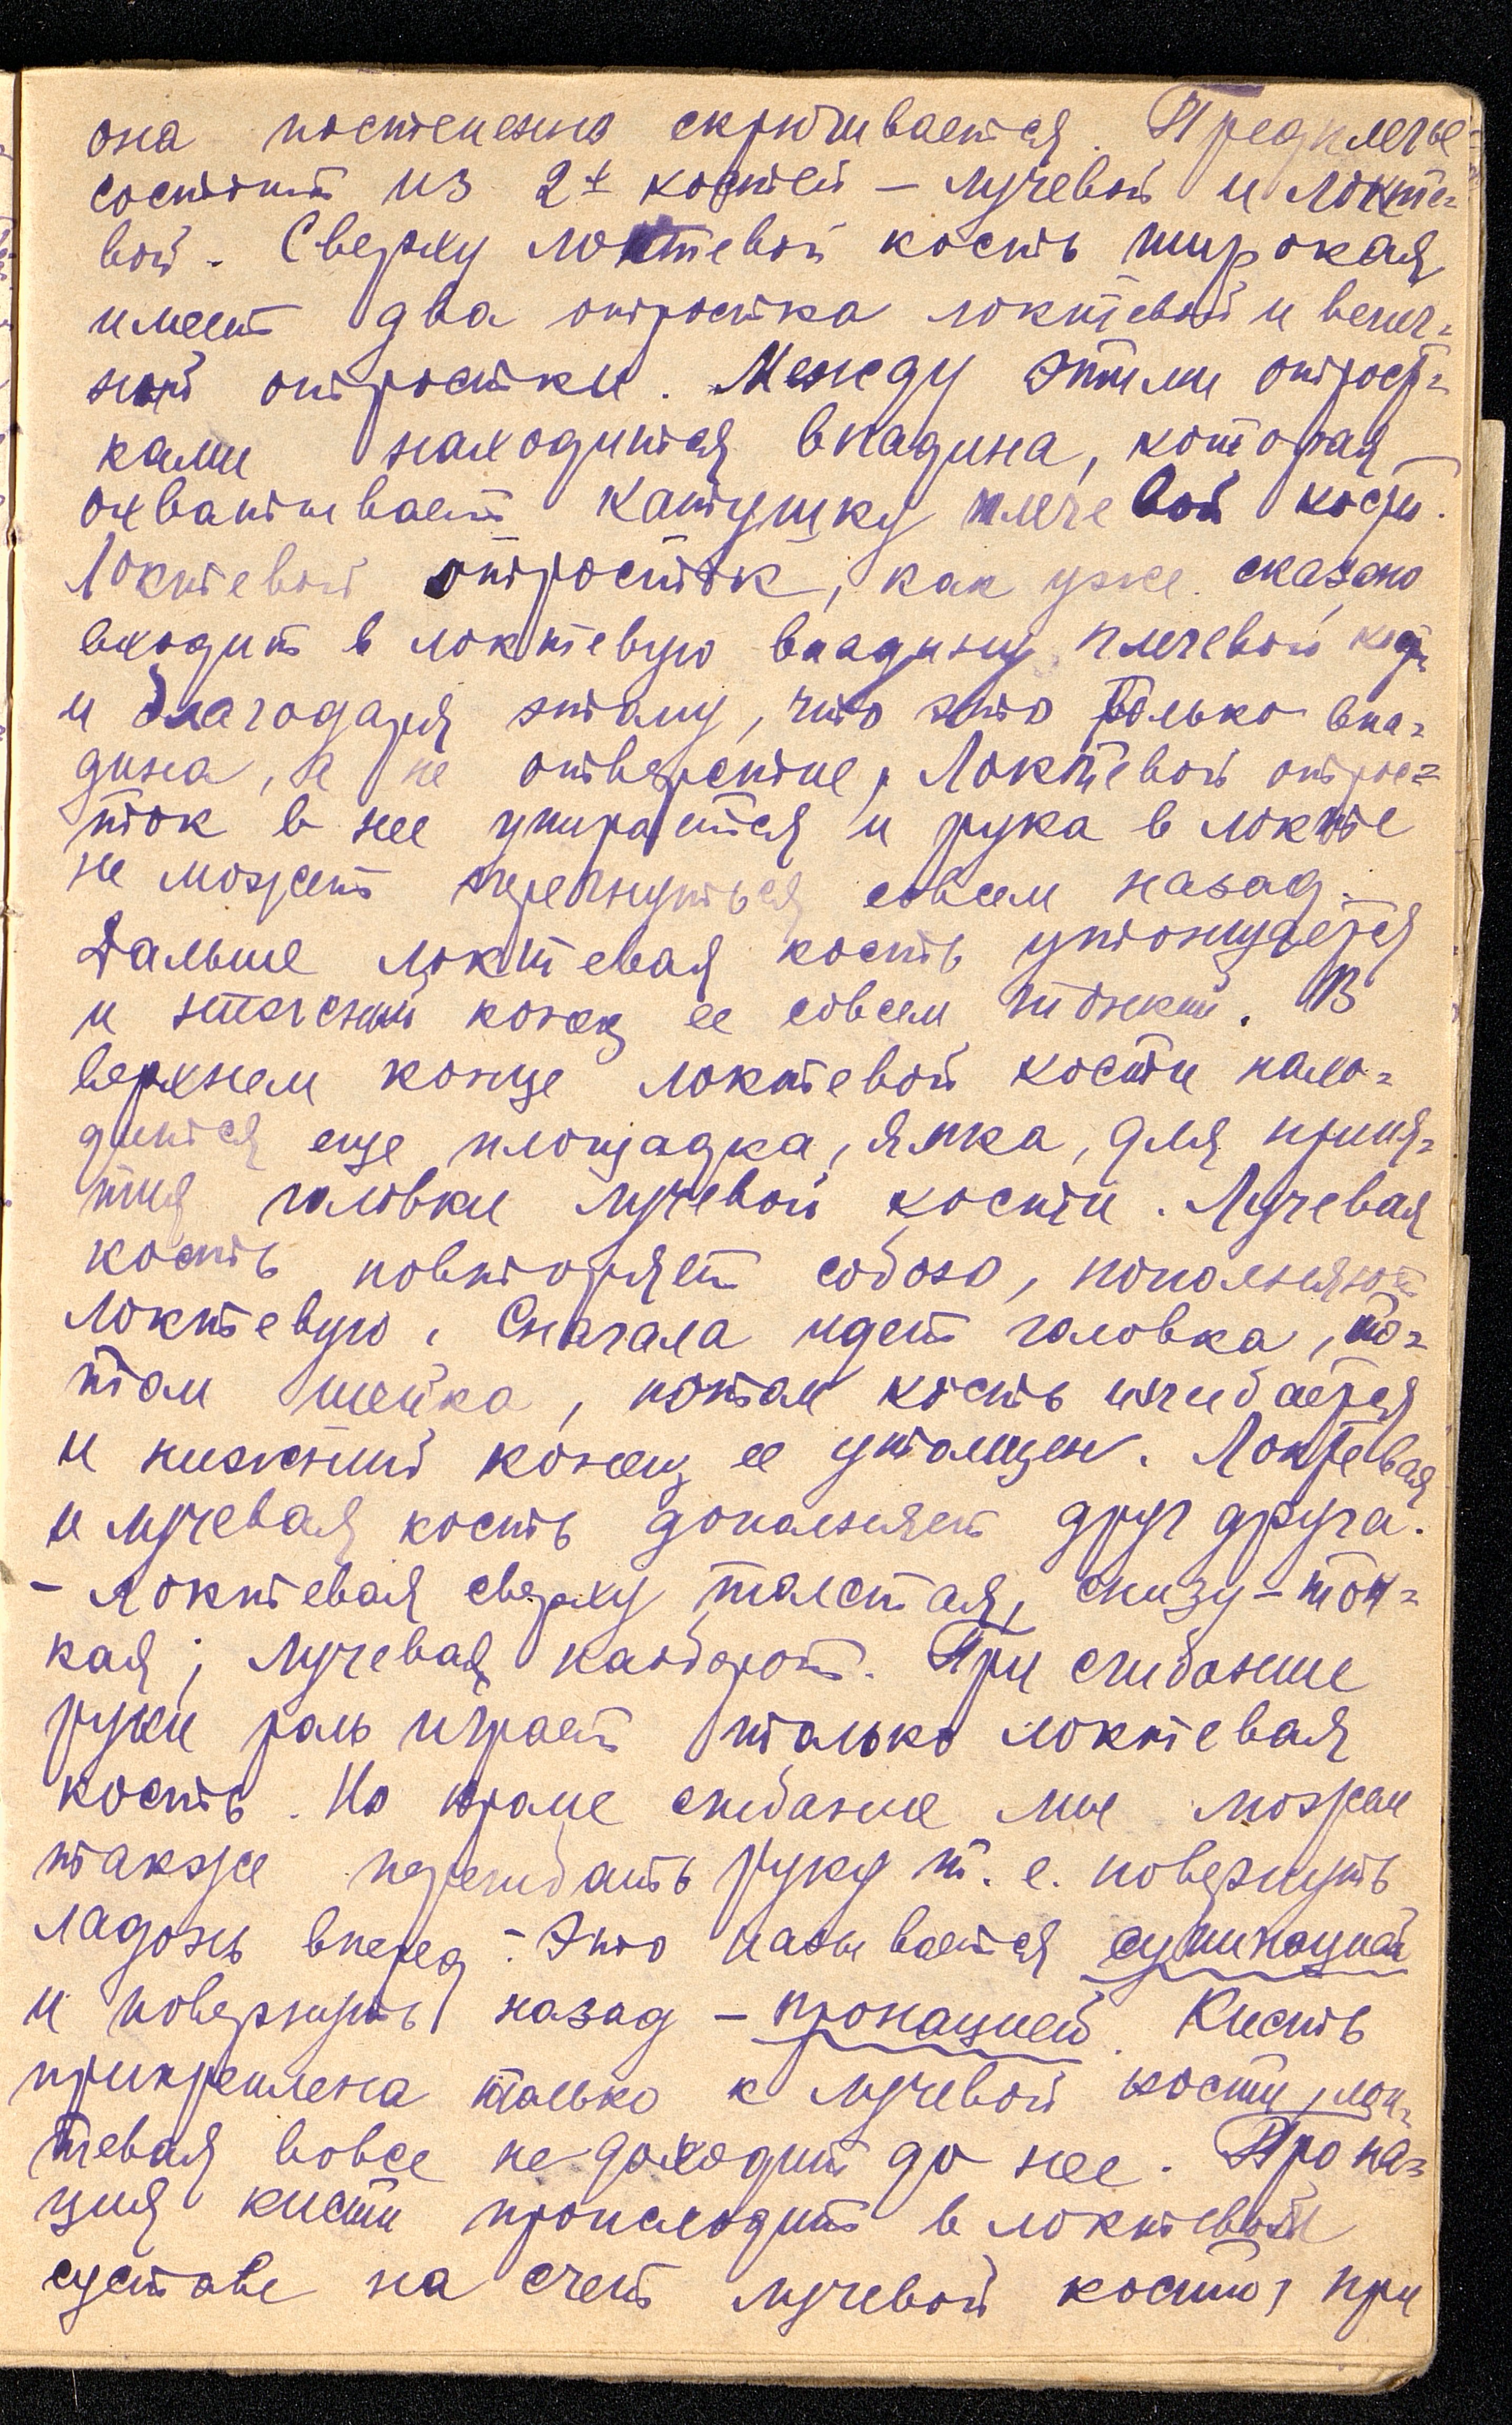 она постепенно скручивается. Предплечье
состоит из 2х костей – лучевой и локте-
вой. Сверху локтевой кость широкая
имеет два отростка локтевой и венеч-
ный отростки. Между этими отрост-
ками находится впадина, которая
охватывает катушку плечевой кости.
Локтевой отросток, как уже сказано
входит в локтевую впадину плечевой кости
и благодаря этому, что это только впа-
дина, а не отверстие, локтевой отрос-
ток в нее упирается и рука в локте
не может перегнуться совсем назад.
Дальше локтевая кость утончается
и нижний конец ее совсем тонкий. В
верхнем конце локтевой кости нахо-
дится еще площадка, ямка, для приня-
тия головки лучевой кости. Лучевая
кость повторяет собою,
локтевую. Сначала идет головка, по-
том шейка, потом кость изгибается
и нижний конец ее утолщен. Локтевая
и лучевая кость дополняет друг друга.
– локтевая сверху толстая, снизу – тон-
кая; лучевая наоборот. При сгибание
руки роль играет только локтевая
кость. Но кроме сгибание мы можем
также перегибать руку т. е. повернуть
ладонь вперед – Это называется супинацией
и повернуть назад – пронацией. Кисть
прикреплена только к лучевой кости, лок-
тевая вовсе не доходит до нее. Прона-
ция кисти происходит в локтевом
суставе на счет лучевой кости, при